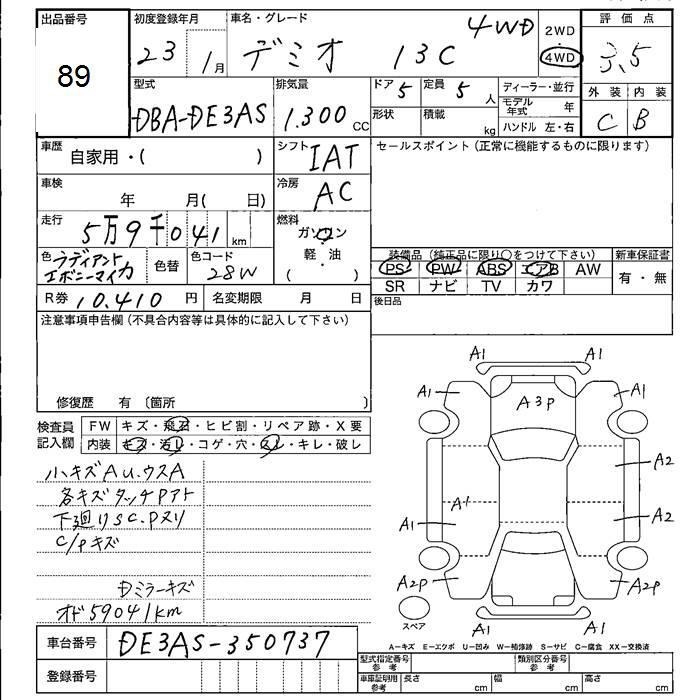 出品番号
89
初度登録年月
23 1月
車名・グレード
デミオ 13C 4WD
2WD
・
4WD
評価点
3.5
外装 内装
C B
型式
DBA-DE3AS
排気量
1.300 CC
ドア 5
定員 5 人
形状
積載 kg
ディーラー・並行
モデル年式 年
ハンドル 左・右
車歴
自家用・( )
シフト IAT
セールスポイント(正常に機能するものに限ります)
車検
年 月( 日)
冷房
AC
走行
5万9千041 km
燃料
ガソリン
・
軽・油
( )
色 ラディアント
エボニーマイカ
色替
色コード
28W
装備品(純正品に限り○をつけて下さい)
新車保証書
PS PW ABS エアB AW
SR ナビ TV カワ
有・無
R券 10.410 円
名変期限 月 日
後日品
注意事項申告欄(不具合内容等は具体的に記入して下さい)
修復歴 有〔箇所 〕
検査員
記入欄
FW キズ・飛石・ヒビ割・リペア跡・X要
内装 キズ・汚レ・コゲ・穴・スレ・キレ・破レ
ハ.キズAU.ウスA
各キズタッチPアト
下廻りSC.Pヌリ
C/Pキズ
Dミラーキズ
オド59041km
A1 A1
A1 A1
A3P
A2
A1
A1 A2
A2P A2P
A1 A1
スペア
A－キズ E－エクボ U－凹み W－補修跡 S－サビ C－腐食 XX－交換済
車台番号
DE3AS-350737
登録番号
型式指定番号
参考
類別区分番号
参考
車庫証明用
参考
長さ cm
幅 cm
高さ cm